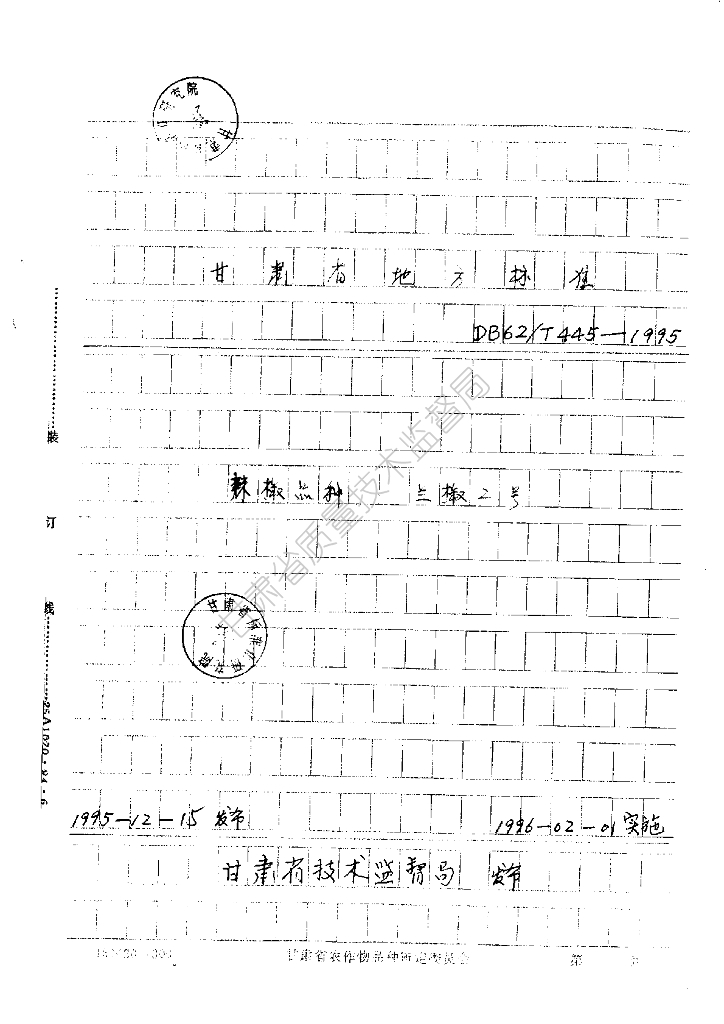 甘肃省地方标准
DB62/T445—1995
辣椒品种 兰椒2号
甘肃省质量技术监督局
甘肃省标准化研究院
装
订
线
1995—12—15 发布
1996—02—01 实施
甘肃省技术监督局 发布
甘肃省农作物品种审定委员会
第 页